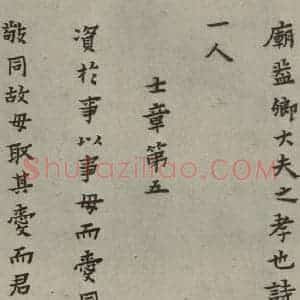 廟蓋卿大夫之孝也詩
一人
士章第五
資於事以事母而愛同
敬同故母取其愛而君
Shufaziliao.com